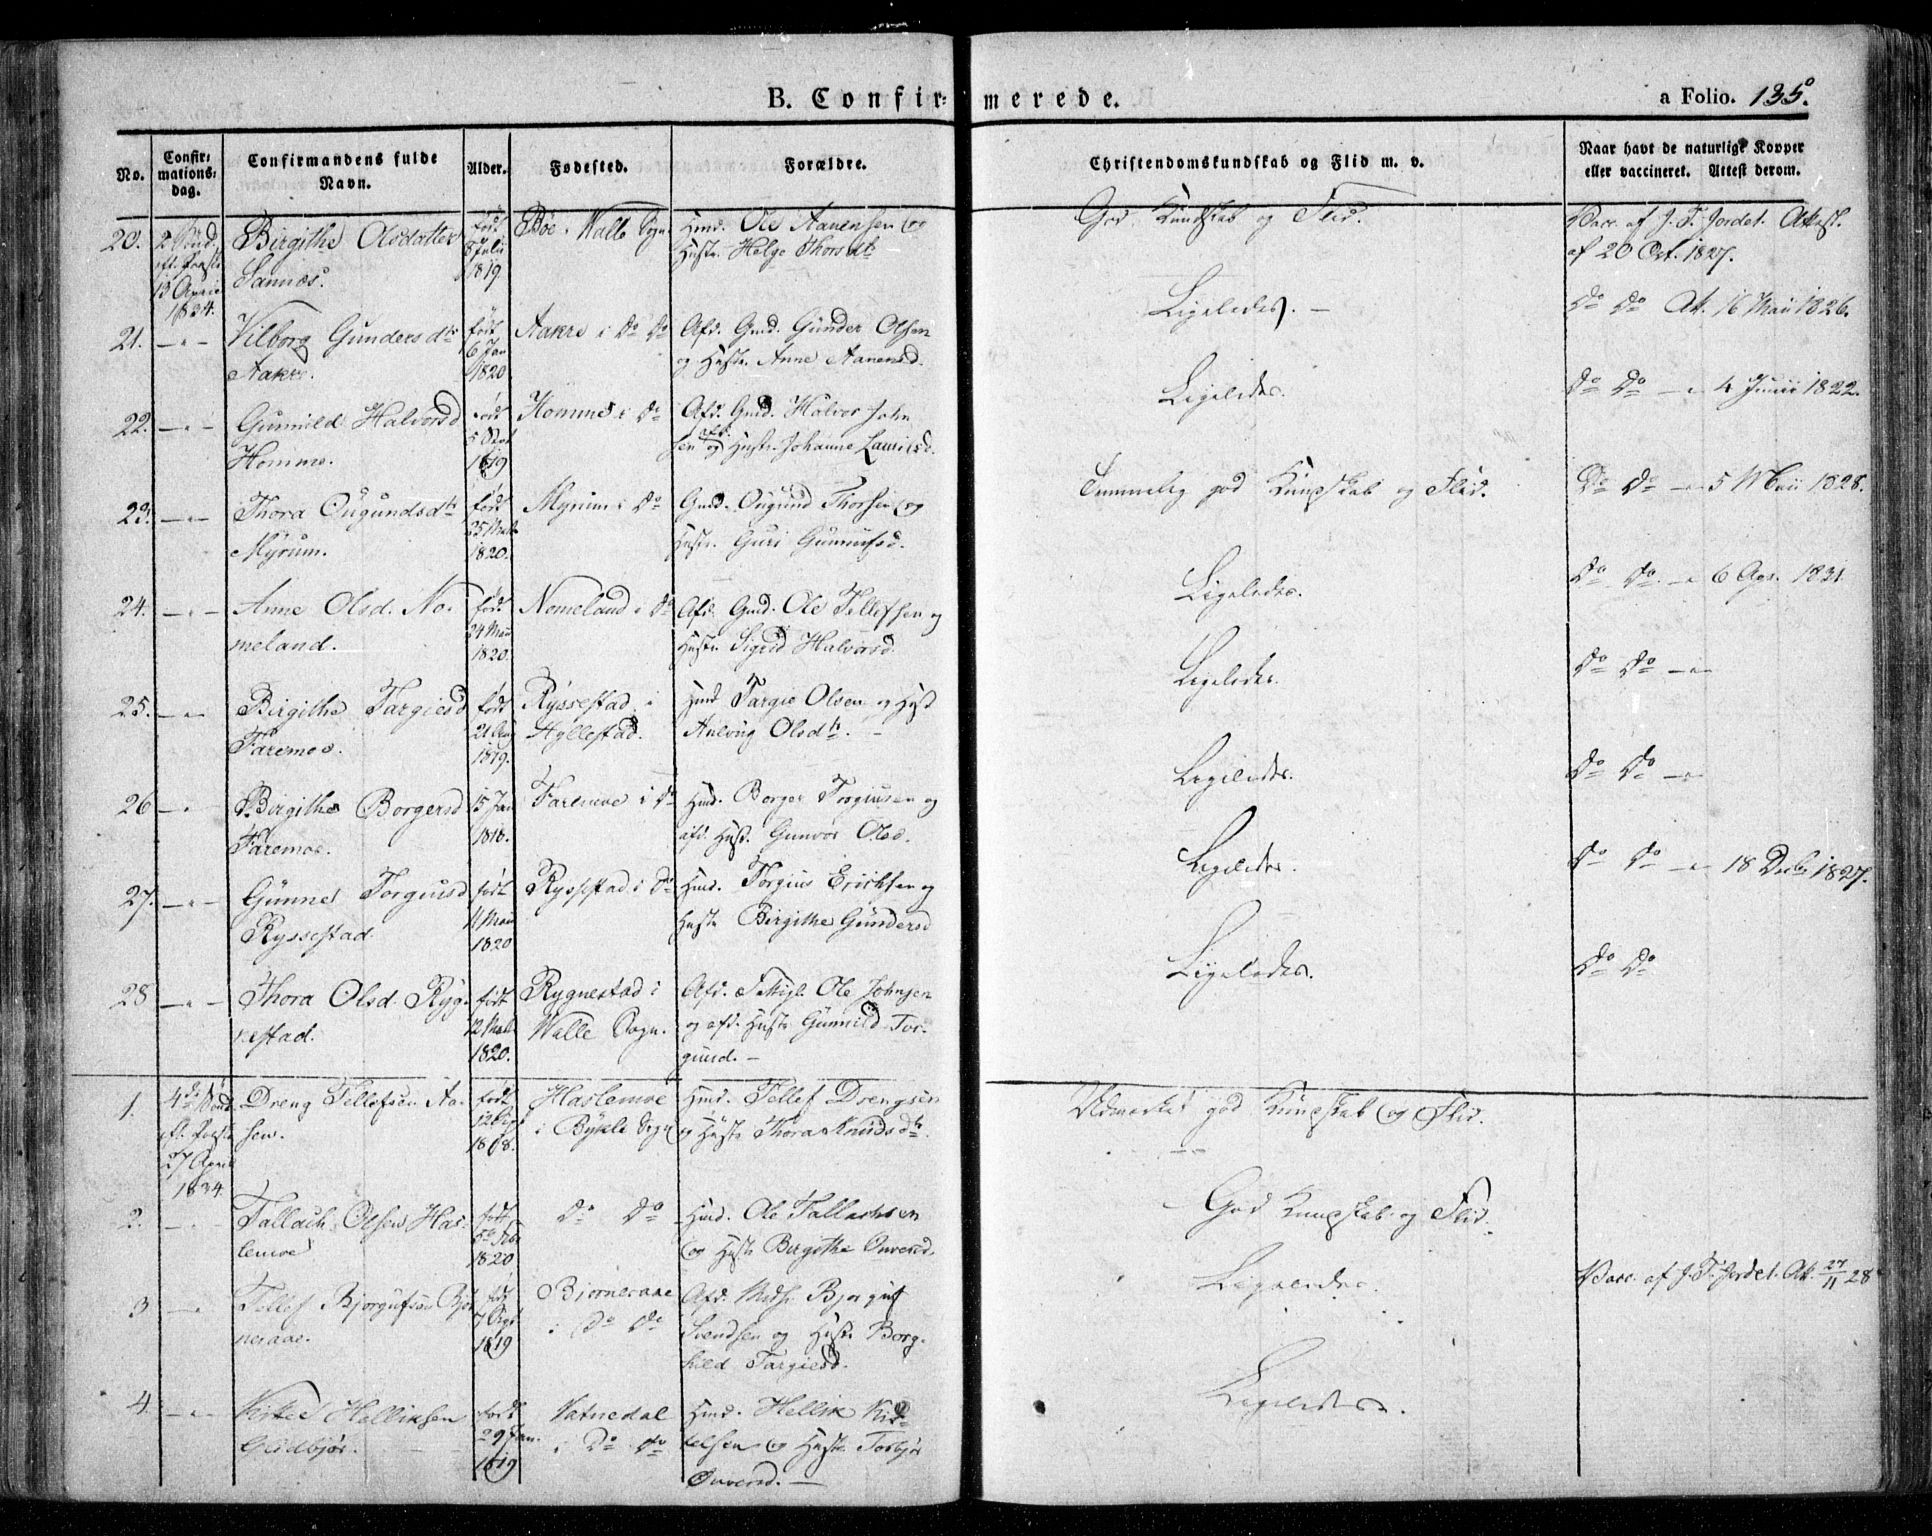 B. Confir= merede.
a Folio. 135.
No.
Confir= mations= dag.
Confirmandens fulde Navn.
Alder.
Fødested.
Forældre.
Christendomskundskab og Flid m. v.
Naar havt de naturlige Kopper eller vaccineret. Attest derom.
20. 2 Sønd. eft. Paaske 13 April 1834.
Birgithe Olsdatter Sannes.
født Julii 1819.
Bøe i Walle Sogn
Hmd. Ole Aanensen og
Hustr. Helge Thorsdtr
God Kundskab og Flid.
Vacc. af J. T. Jordet. Attest. af 20 Oct. 1827.
21. —"—
Vilborg Gundersdtr Aakre.
født 6 Jan 1820
Aakre i Do Do
Afd. Gmd. Gunder Olsen
og Hustr. Anne Aanensd.
Ligeledes. —
Do Do At. 16 Mai 1826.
22. —"—
Gunnild Halvorsd Homme.
født 1819
Homme i Do
Afd. Gmd. Halvor John
sen og afd. Hustr. Johanne Lauritsd.
Ligeledes.
Do Do —"— 4 Junii 1822.
23. —"—
Thora Ougundsdtr Myrum.
født 25 Mart 1820.
Myrum i Do
Gmd. Ougund Thorsen og
Hustr. Guri Gunnufsd.
Temmelig god Kundskab og Flid.
Do Do —"— 5 Maii 1828.
24. —"—
Anne Olsd. No-
meland.
født 24 Mai 1820.
Nomeland i Do
Afd. Gmd. Ole Tellefsen og
Hustr. Sigrid Halvorsd.
Ligeledes.
Do Do —"— 6 Ags. 1831.
25. —"—
Birgithe Targiesd Faremoe.
født 21 Aug 1819.
Ryssestad i Hyllestad.
Hmd Targie Olsen og Hust
Aslaug Olsdtr. —
Ligeledes.
Do Do —"—
26 —"—
Birgithe Borgersd Faremoe.
15 Jan 1818.
Faremoe i Do
Hmd. Borger Torgiusen og
afd. Hust. Gunvor Olsd.
Ligeledes.
Do Do —"—
27. —"—
Gunne Torgiusd Ryssestad
født 11 Mai 1820
Ryssestad i Do
Hmd. Torgius Erichsen og
Hustr Birgithe Gundersd
Ligeledes.
Do Do —"— 18 Decb 1827.
28 —"—
Thora Olsd. Ryg-
nestad.
født 12 Mart 1820.
Rygnestad i Walle Sogn.
Afd. Ole Johnsen
og afd. Hustr Gunnild Tor-
giusd. —
Ligeledes.
Do Do
1. 4de Sønd. eft. Paaske 27 April 1834.
Dreng Tellefsen Aa-
sen.
født 1818.
Haslemoe i Bykle Sogn
Hmd. Tellef Drengsen
og Hustr Thora Knudsdtr.
Udmærket god Kundskab og Flid.
2. —"—
Tallach Olsen Has-
lemoe
født Feb. 1820
Do Do
Hmd. Ole Tallachsen
og Hustr Birgithe Onversd.
God Kundskab og Flid.
3 —"—
Tellef Bjorgufsen Bjor
neraae.
født 7 Sept 1819
Bjorneraae i Do Do
Afd. Bjorguf
Svendsen og Hustr. Borg-
hild Targiesd.
Ligeledes.
Vacc. af J. T. Jordet. At. 27/11 28
4. —"—
Helliksen Gudbjør.
født 29 Jan. 1819
Vatnedal i Do Do
Hmd. Hellik Kit-
telsen og Hustr Torbjør
Onversd. —
Ligeledes.